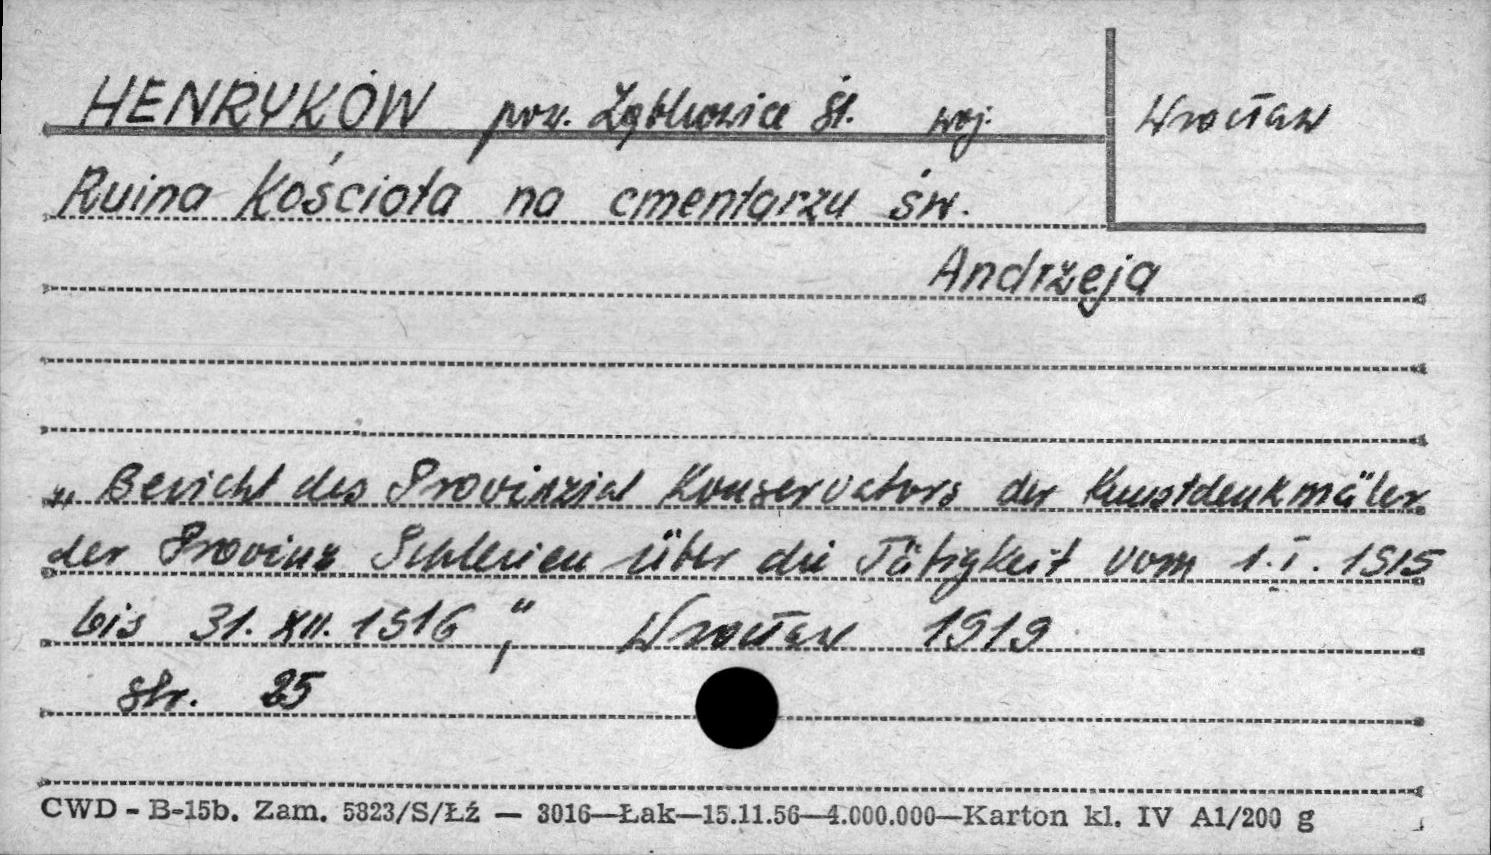 HENRYKÓW pow. Ząbkowice Śl. woj. Wrocław
Ruina Kościoła na cmentarzu św.
Andrzeja
„Bericht des Provinzial Konservators der Kunstdenkmäler
der Provinz Schlesien über die Tätigkeit vom 1.I.1915
bis 31.XII.1916", Wrocław 1919
str. 25
CWD - B-15b. Zam. 5823/S/Łź — 3016—Łak—15.11.56—4.000.000—Karton kl. IV A1/200 g